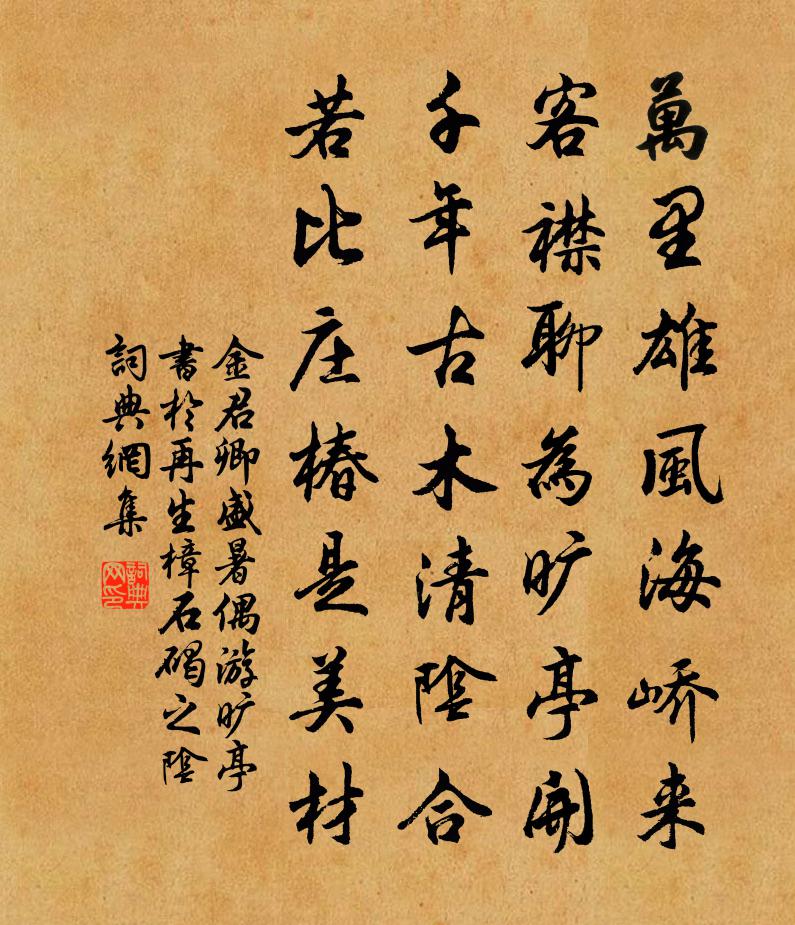 萬里雄風海嶠来
客襟聊為旷亭開
千年古木清陰合
若比庄椿是美材
金君卿盛暑偶游旷亭
書於再生樟石碣之陰
詞典網集
詞典網印